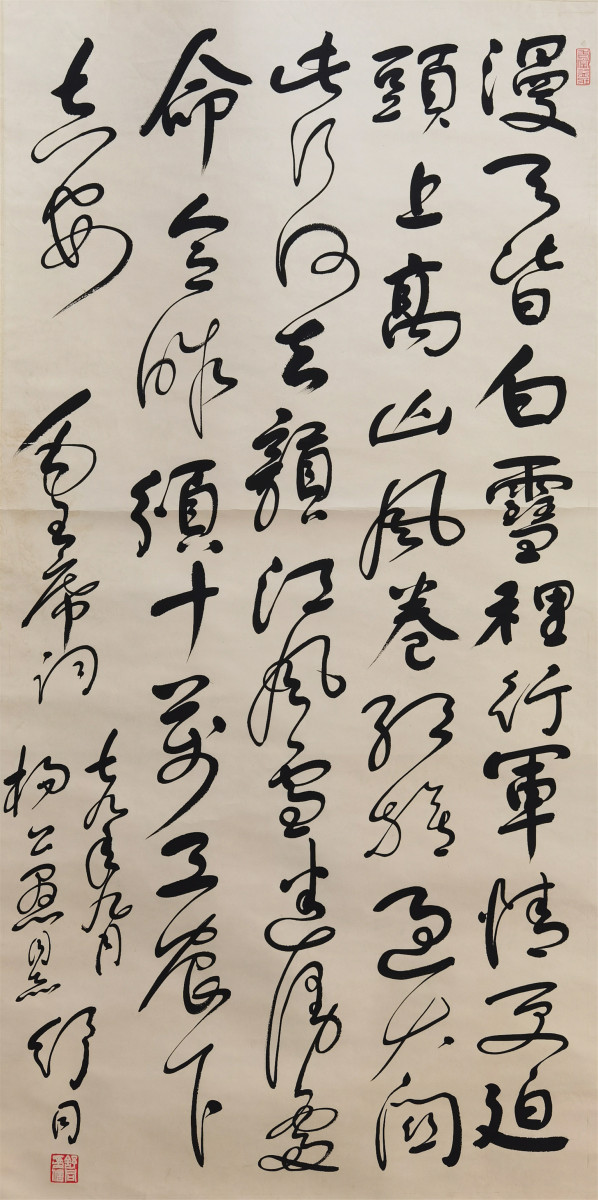 漫天皆白雪裡行軍情更迫
頭上高山風卷紅旗過大關
此行何去贛江風雪迷漫處
命令昨頒十萬工農下
吉安 毛主席詞
七九年九月
楊公愚同志 舒同